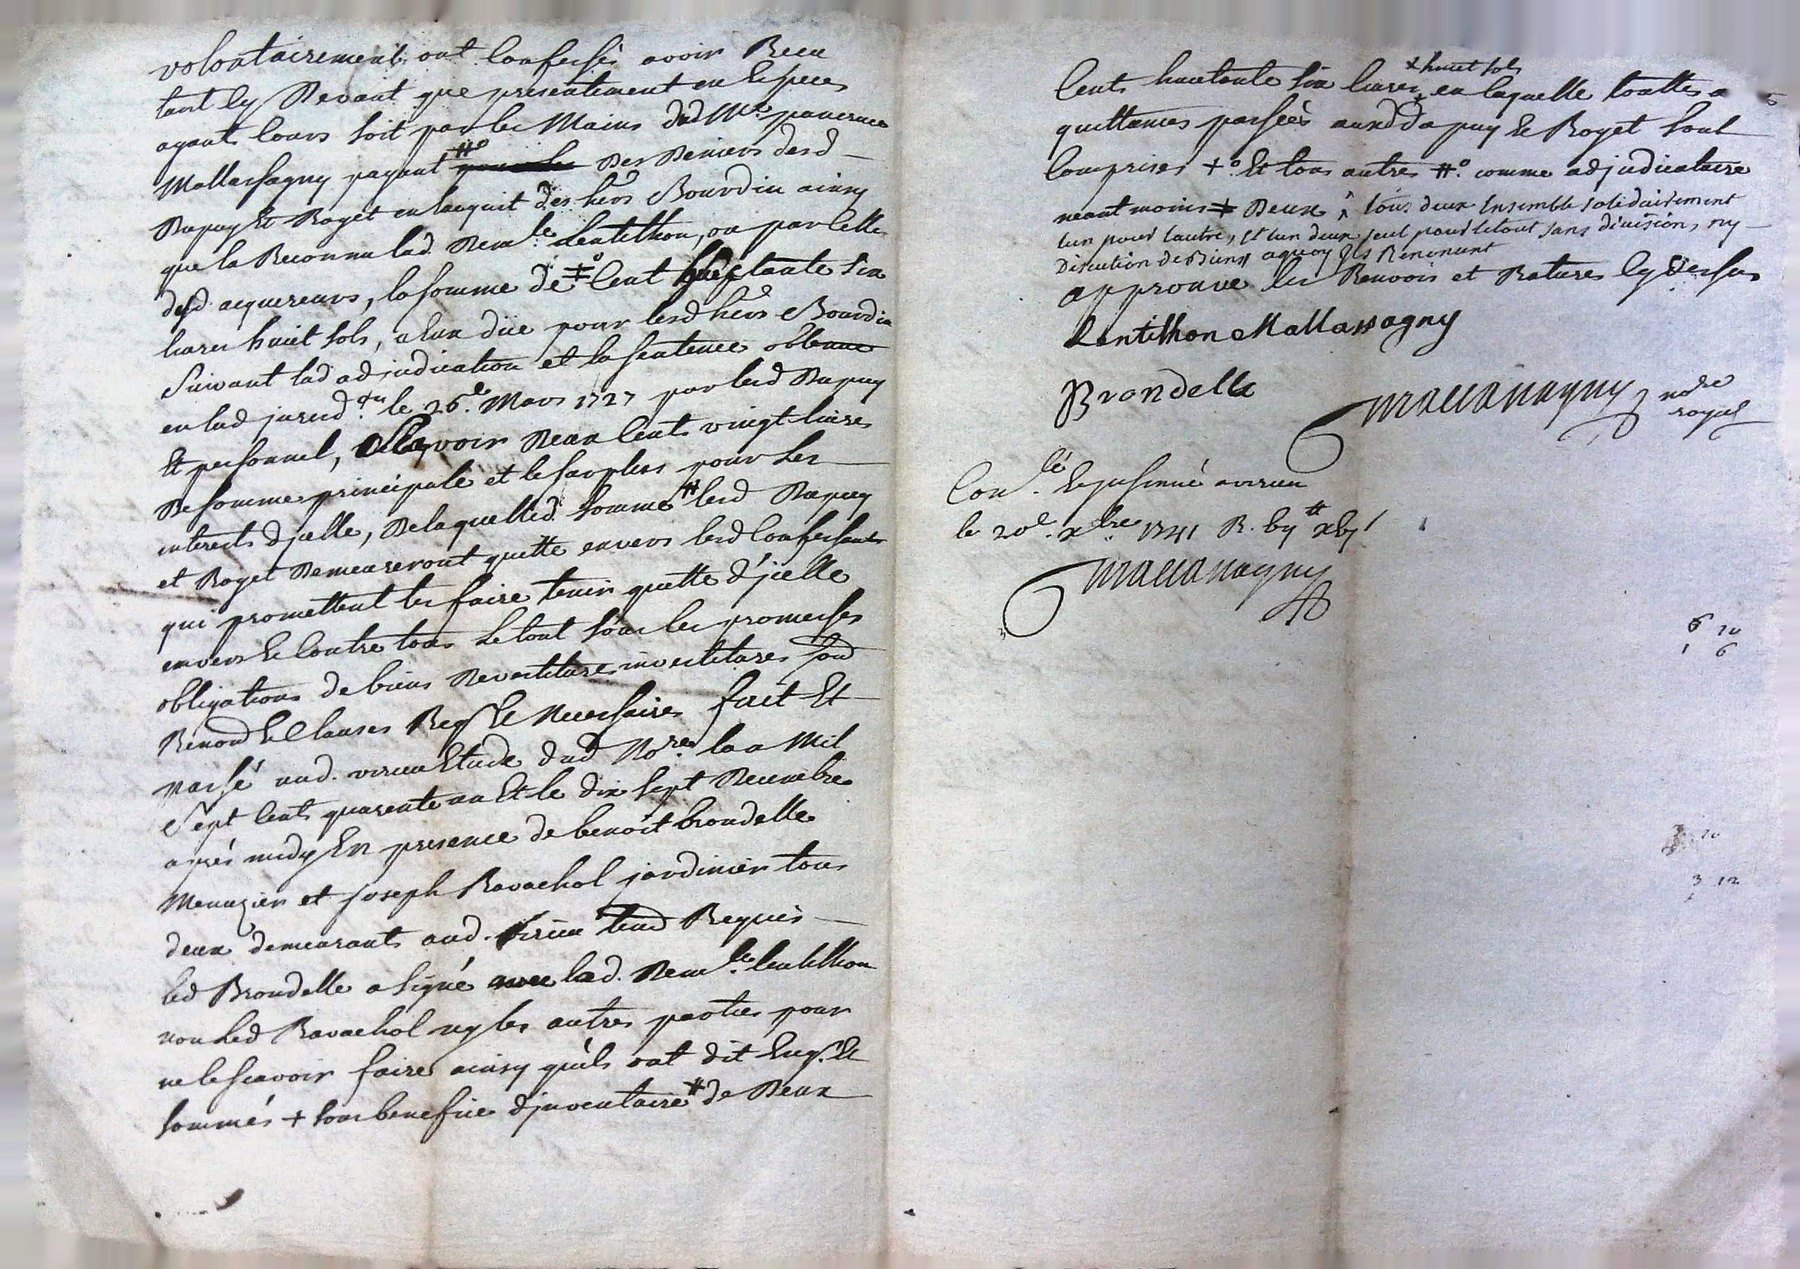 volontairement ont confessés avoir Receu
tant cy Devant que presentement en Especes
ayants cours soit par les Mains dud Me
Mallassagny payant #° Des Deniers desd
Dupuy Et Roget en lacquit des hers Bourdin ainsy
que la Reconnu lad. Demlle Lentilhon, ou par celles
desd acquereurs, la somme de ‡° Cent huictante six
livres huict sols, a eux düe pour lesd hers Bourdin
Suivant lad adjudication et la sentence obtenue
en lad jurisd.on le 26e. Mars 1727 par lesd Dupuy
Et personnel, Scavoir Deux Cents vingt livres
De somme principale et le surplus pour les
interests djcelle, De laquelle somme # lesd Dupuy
et Roget Demeureront quitte envers lesd Confessants
qui promettent les faire tenir quitte d'jcelle
envers Et Contre tous Le tout sous les promesses
obligations de biens Devestitures investitures
Renond Et Clauses Reqs Et Necessaires fait Et
passé aud. virieu Etude dud Nore. Lan Mil
Sept Cents quarente un Et le dix sept Decembre
aprés midy En presence de benoit brondelle
Menuzier et joseph Ravachol jardinier tous
deux demeurants aud. virieu Requis
led Brondelle a signé avec lad. Demlle. Lentilhon
non Led Ravachol ny les autres parties pour
ne le scavoir faire ainsy quils ont dit Enqs. Et
sommés + sous benefice djnventaire # de Deux
Cents huictante six livres + huict sols en laquelle touttes
quittances passées auxd Dupuy Et Roget sont
Comprises +° Et tous autres #° comme adjudicataire
neantmoins ‡ Deux ^ tous deux Ensemble solidairement
lun pour lautre, Et lun deux seul pour le tout sans division, ny
Discution de Biens aquoy Ils Renoncent
approuve les Renvois et Ratures cy Dessus
Lentilhon Mallassagny
Brondelle
Mallassagny nore
royal
Conlé. Et jnsinué a virieu
le 20e. xbre. 1741 R.
Mallassagny
6 10
1 6
10
3 12